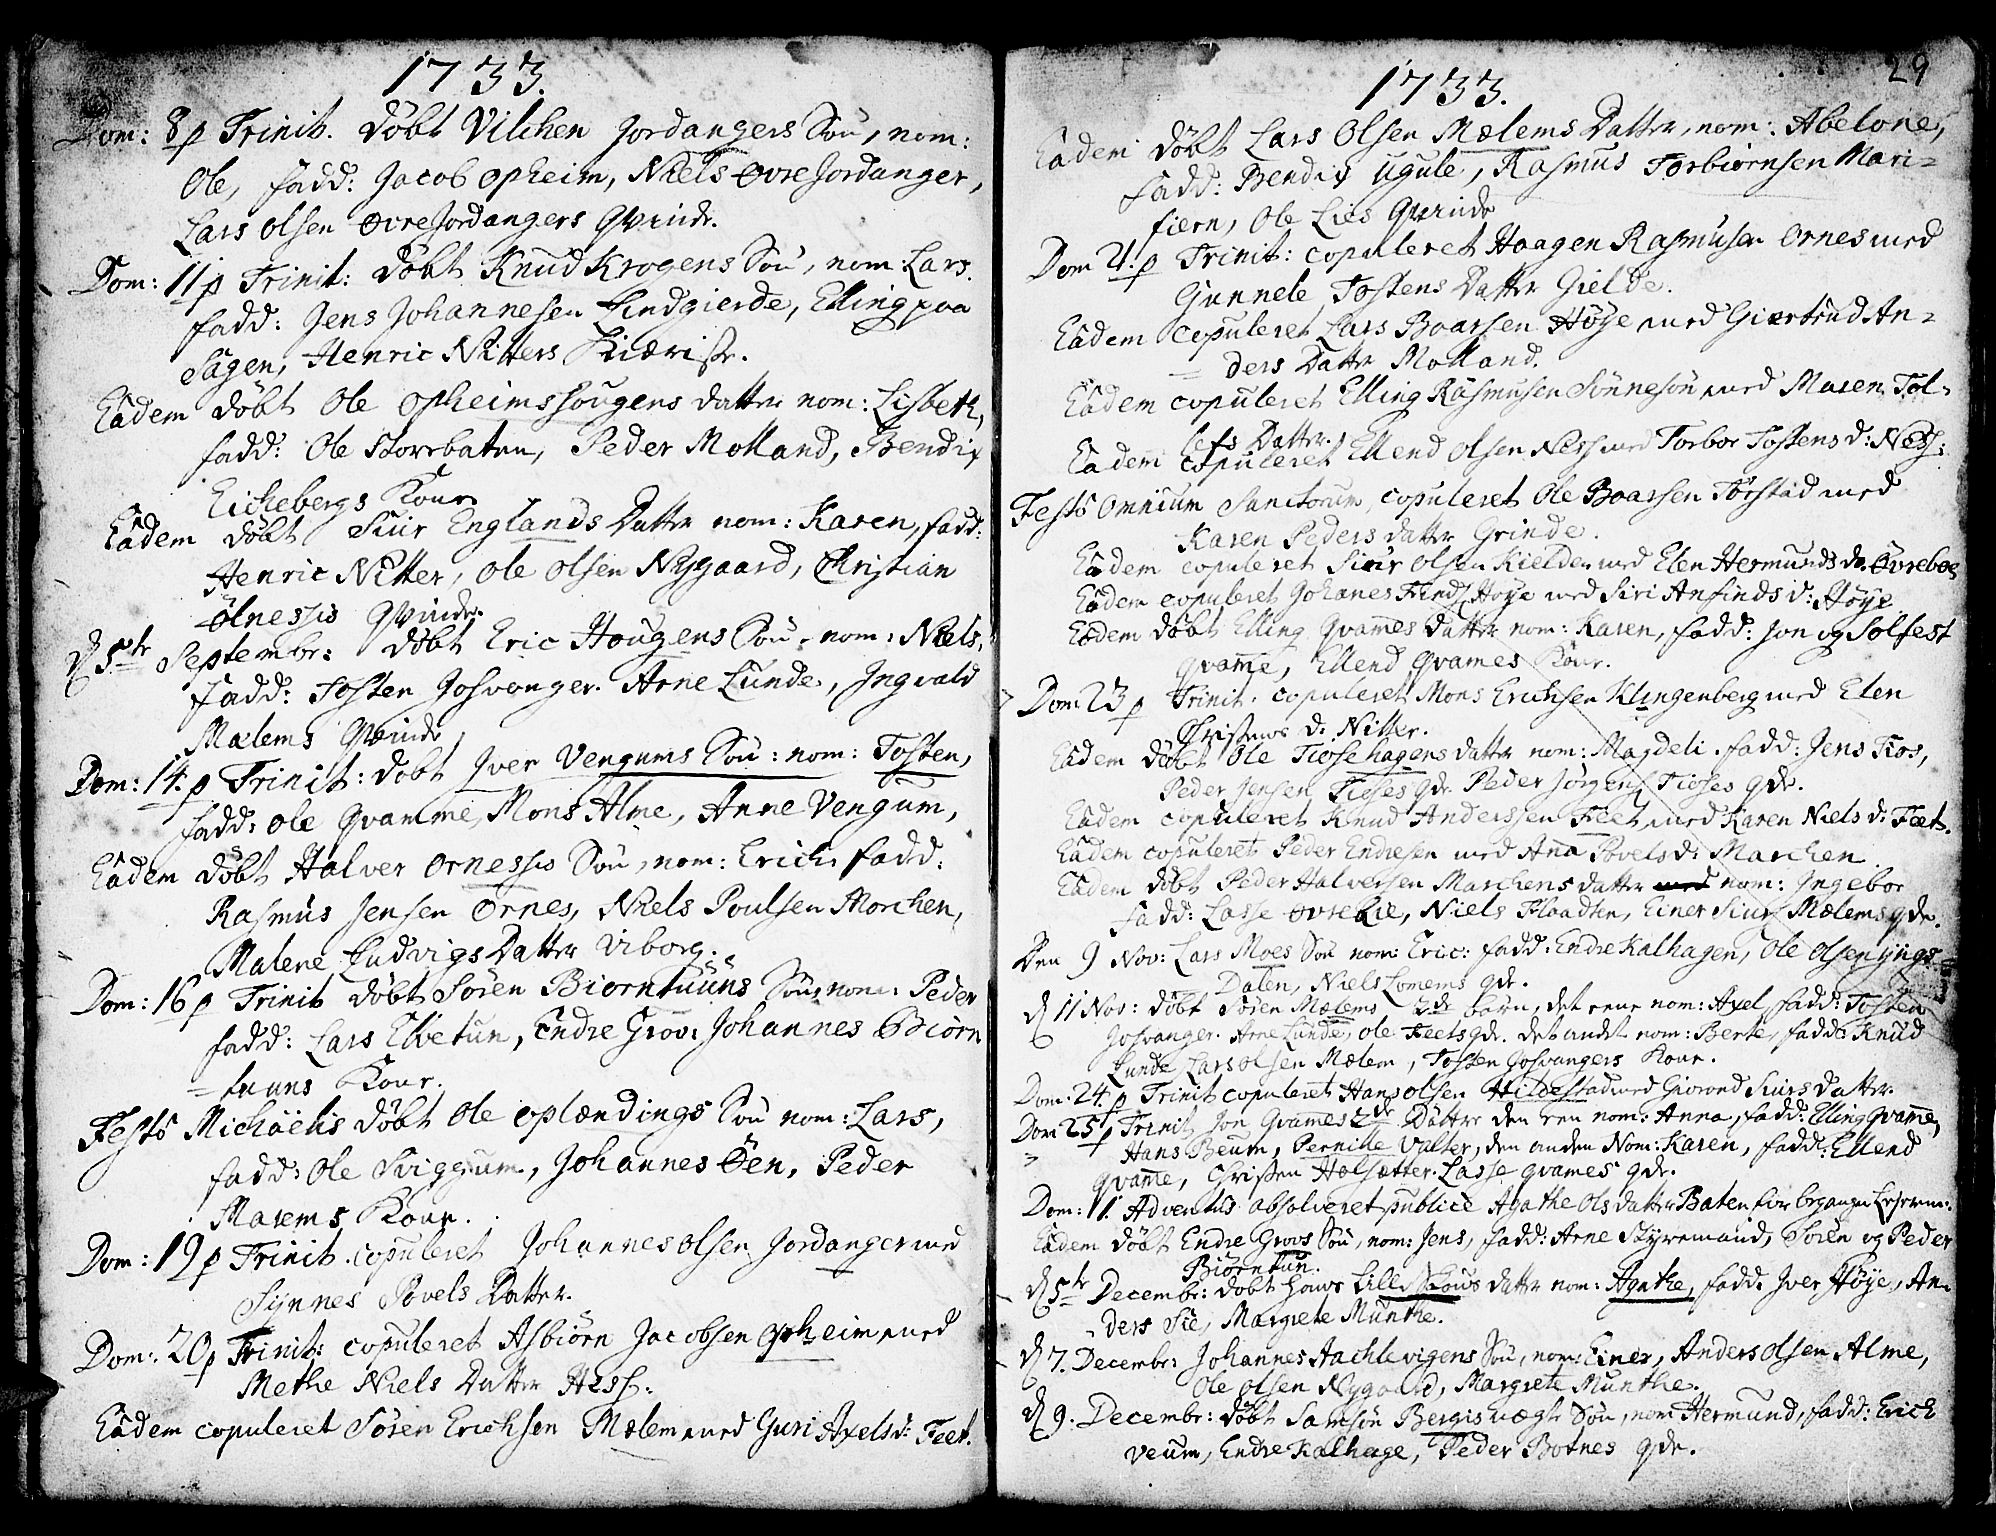 1733.
Dom: 8 p Trinit. döbt Vilchen Jordangers Sön, nom:
Ole, fadd: Jacob Opheim, Niels Øvre Jordanger,
Lars Olsen Øvre Jordangers Qvinde.
Dom: 11 p Trinit: döbt Knud Krogens Sön, nom: Lars.
fadd: Jens Johannesen Lindgierde, Elling paa
Hagen, Henric Nitters
Eadem döbt Ole Opheimshougens datter nom: Lisbeth,
fadd: Ole Storebaten, Peder Molland, Bendix
Eichebergs Kone
Eadem döbt Siur Englands Datter nom: Karen, fadd:
Henric Nitter, Ole Olsen Nygaard, Christian
Ølnessis Qvinde.
d 5te Septembr: döbt Eric Hougens Sön, nom: Niels,
fadd: Tosten Josvanger. Arne Lunde, Ingvald
Mælems Qvinde
Dom: 14. p Trinit: döbt Iver Vengums Sön: nom: Tosten,
fadd: Ole Qvamme, Mons Alme, Anne Vengum,
Eadem döbt Halver Ornessis Sön, nom: Erich, fadd:
Rasmus Jensen Ornes, Niels Poulsen Morchen,
Malene Ludvigs Datter Viborg.
Dom: 16 p Trinit döbt Sören Biorntuuns Sön, nom: Peder
fadd: Lars Elvetun, Endre Grov: Johannes Biörn
= tuuns Kone.
Festo Michaelis döbt Ole Oplændings Sön nom: Lars,
fadd: Ole Sviggum, Johannes Öen, Peder
Marems Kone.
Dom: 19 p Trinit. copuleret Johannes Olsen Jordanger med
Synnes Povels Datter.
Dom: 20 p Trinit: copuleret Asbiörn Jacobsen Opheim med
Methe Niels Datter Hess:
Eadem copuleret Sören Erichsen Mælem med Guri Axels d: Feet.
29
1733.
Eadem döbt Lars Olsen Mælems Datter, nom: Abelone,
fadd: Bendix Ugule, Rasmus Torbiörnsen Mari=
fiern, Ole Lies Qvinde
Dom 21. p Trinit: copuleret Haagen Rasmusen Ornes med
Gunnele Tostens Datter Gielde.
Eadem copuleret Lars Boarsen Høye med Giertrud An=
= ders Datter Molland.
Eadem copuleret Elling Rasmusen Sönnesön med Maren Tol=
lefs Datter.
Eadem copuleret Ellend Olsen Ness med Torbor Tostens d: Ness:
Festo Omnium Sanctorum, copuleret Ole Boarsen Törstad med
Karen Peders datter Grinde.
Eadem copuleret Siur Olsen Kielden med Elen Hermunds do. Øvreboe
Eadem copuleret Johanes Finds. Høye med Siri Anfinds d: Høye
Eodem döbt Elling Qvames datter nom: Karen, fadd: Jon og Solfest
Qvame, Ellend Qvames Kone.
Dom 23 p Trinit. copuleret Mons Erichsen Klingenberg med Elen
Christens d. Nitter.
Eadem döbt Ole Tiosehagens datter nom: Magdeli. fadd: Jens Tios,
Peder Jensen Tioses qde. Peder Jörgens Tioses qde.
Eadem copuleret Knud Anderssen Feet med Karen Niels d: Feet.
Eadem copuleret Peder Endresen med Ana Povels d: Marchen.
Eadem döbt Peder Halversen Marchens datter nom: Ingebor
fadd: Lasse Øvre Lie, Niels Flaadten, Einer Siurs. Mælems qde.
Den 9 Nov: Lars Moes Sön nom: Eric: fadd: Endre Kalhagen, Ole Olsen Yngs=
Dalen, Niels Lomems qde.
d 11 Nov: döbt Sören Mælems 2de barn, det eene nom: Axel, fadd: Tosten
Josvanger. Arne Lunde, Ole Feets qde. det andet nom: Berte, fadd: Knud
Lunde Lars Olsen Mælem, Tosten Josvangers Kone.
Dom: 24 p Trinit copuleret Hans Olsen Hildestad med Giorond Siurs Datter.
Dom 25 p Trinit. Jon Qvames 2de Döttre den een nom: Anna, fadd: Elling Qvame,
Hans Beum, Pernille Valter, den anden Nom: Karen, fadd: Ellend
Qvame, Christen Holsætter. Lasse Qvames qde.
Dom: 1. Adventus absolveret publice Agathe Ols datter Baten for begangen
Eadem döbt Endre Grovs Sön, nom: Jens, fadd: Arne Styremand, Sören og Peder
Biorntun.
d 5te Decembr: döbt Hans Lille datter nom: Agathe, fadd: Iver Høye, An=
ders Sie, Margrete Munthe.
d 7. Decembr: Johannes Aachlevigens Sön, nom: Einer, Anders Olsen Alme,
Ole Olsen Nygaard, Margrete Munthe.
d 9. Decembr: döbt Samson Bergis uægte Sön, nom Hermund, fadd: Erich
Veum, Endre Kalhage, Peder Botnes qde.